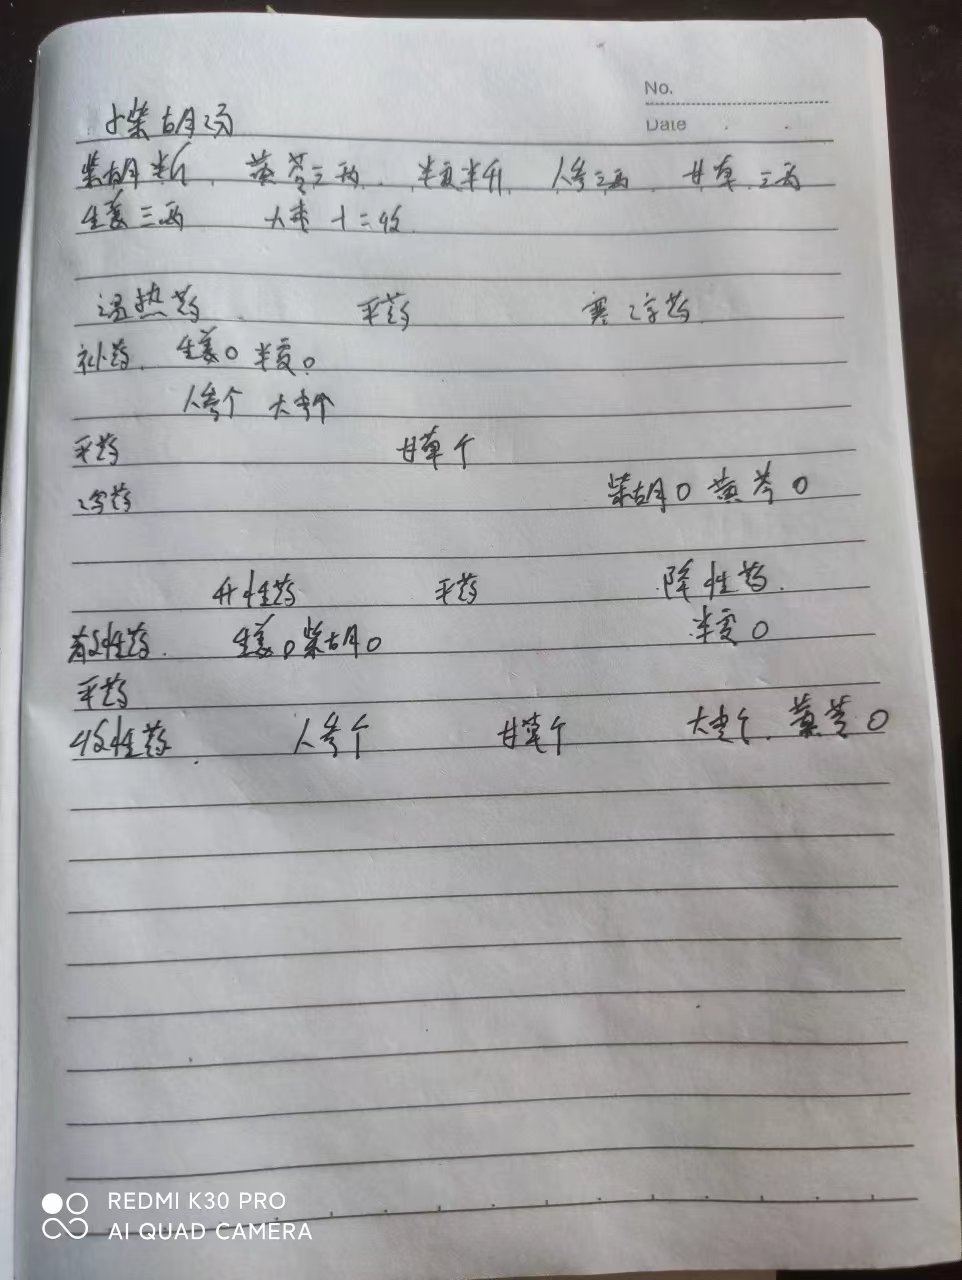 No.
小柴胡汤
Date
柴胡半斤, 黄芩三两, 半夏半升, 人参三两, 甘草三两
生姜三两 大枣十二枚
温热药 平药 寒凉药
补药. 生姜○ 半夏○
人参个 大枣个
平药 甘草个
泻药 柴胡○ 黄芩○
升性药 平药 降性药.
半夏○
散性药. 生姜○柴胡○
平药
收性药. 人参个 甘草个 大枣个. 黄芩○
REDMI K30 PRO
AI QUAD CAMERA